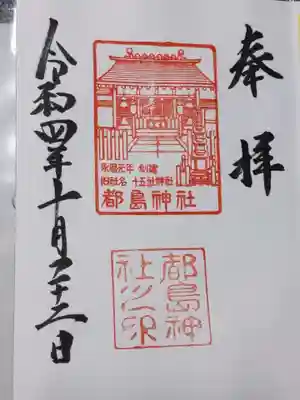 奉拝
永暦元年 創建
旧社名 十五社神社
都島神社
都島神社之印
令和四年十月二十二日